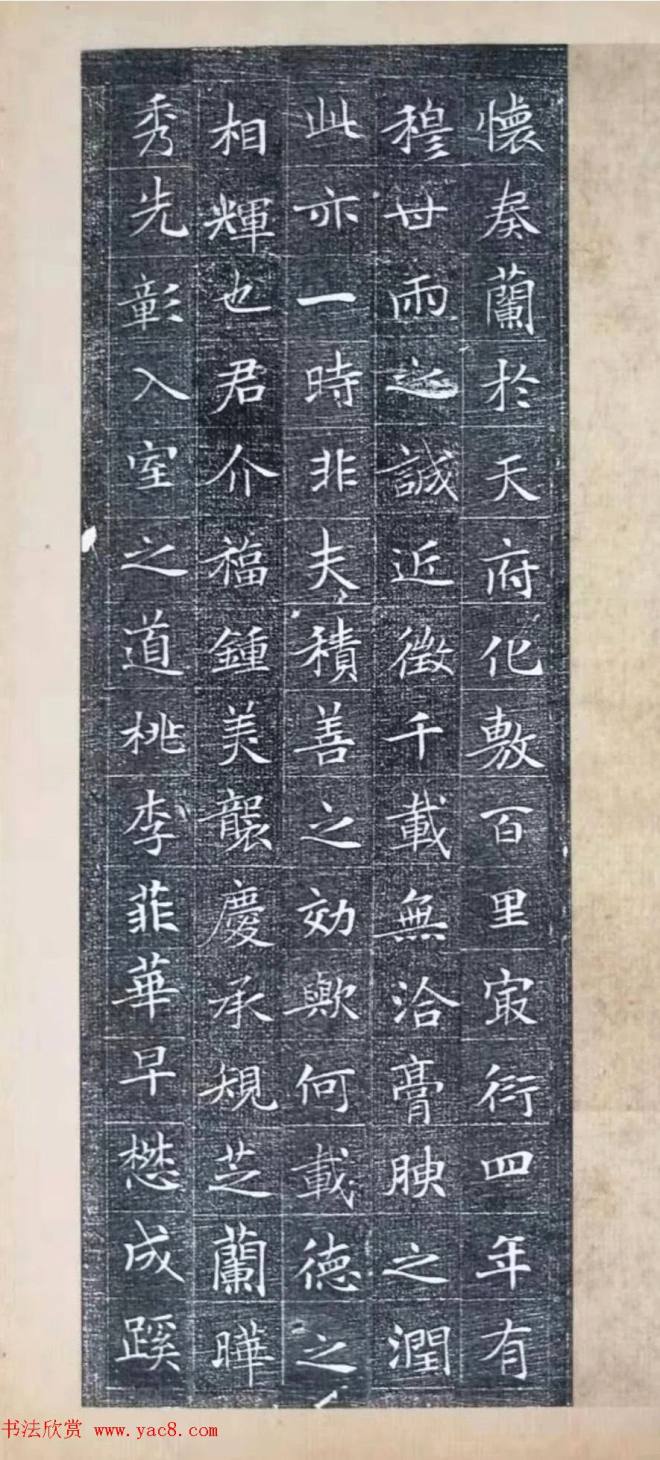 懷奏蘭於天府化敷百里冣衍四年有
穆世雨之誠近徵千載無洽膏腴之潤
此亦一時非夫積善之効歟何載德之
相輝也君介福鍾美襲慶承規芝蘭曄
秀先彰入室之道桃李菲華早懋成蹊
书法欣赏 www.yac8.com